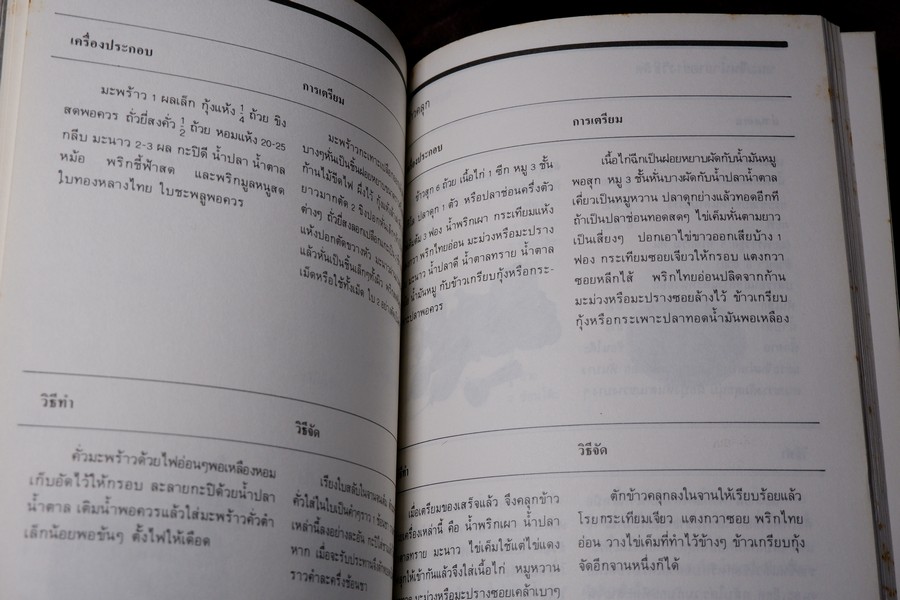 เครื่องประกอบ
มะพร้าว 1 ผลเล็ก กุ้งแห้ง 1/4 ถ้วย ขิง
สดพอควร ถั่วยี่สงคั่ว 1/2 ถ้วย หอมแห้ง 20-25
กลีบ มะนาว 2-3 ผล กะปิดี น้ำปลา น้ำตาล
หม้อ พริกชี้ฟ้าสด และพริกมูลหนูสด
ใบทองหลางไทย ใบชะพลูพอควร
การเตรียม
มะพร้าวกะเทาะ
บางๆหั่นเป็นชิ้นฝอย
ก้านไม้ขีดไฟ ผึ่งไว้ กุ้งแห้ง
ยาวมากตัด 2 ขิงปอก
ต่างๆ ถั่วยี่สงลอกเปลือก
แห้งปอกตัดขวางหัว มะนาว
แล้วหั่นเป็นชิ้นเล็กๆทั้งผิว
เม็ดหรือใช้ทั้งเม็ด ใบ 2 อย่าง
วิธีทำ
คั่วมะพร้าวด้วยไฟอ่อนๆพอเหลืองหอม
เก็บอัดไว้ให้กรอบ ละลายกะปิด้วยน้ำปลา
น้ำตาล เติมน้ำพอควรแล้วใส่มะพร้าวคั่วตำ
เล็กน้อยพอข้นๆ ตั้งไฟให้เดือด
วิธีจัด
เรียงใบสลับในจานจนเต็ม
คั่วใส่ในใบเป็นคำๆราว 1 ช้อนชา
เหล่านี้ลงอย่างละอัน
หาก เมื่อจะรับประทาน
ราวคำละครึ่งช้อนชา
ข้าวคลุก
ข้าวสุก 6 ถ้วย เนื้อไก่ 1 ซีก หมู 3 ชั้น
ปลาดุก 1 ตัว หรือปลาช่อนครึ่งตัว
3 ฟอง น้ำพริกเผา กระเทียมแห้ง
พริกไทยอ่อน มะม่วงหรือมะปราง
มะนาว น้ำปลาดี น้ำตาลทราย น้ำตาล
น้ำมันหมู กับข้าวเกรียบกุ้งหรือกระ-
เพาะปลาพอควร
การเตรียม
เนื้อไก่ฉีกเป็นฝอยหยาบผัดกับน้ำมันหมู
พอสุก หมู 3 ชั้นหั่นบางผัดกับน้ำปลาน้ำตาล
เคี่ยวเป็นหมูหวาน ปลาดุกย่างแล้วทอดอีกที
ถ้าเป็นปลาช่อนทอดสดๆ ไข่เค็มหั่นตามยาว
เป็นเสี่ยงๆ ปอกเอาไข่ขาวออกเสียบ้าง 1
ฟอง กระเทียมซอยเจียวให้กรอบ แตงกวา
ซอยหลีกไส้ พริกไทยอ่อนปลิดจากก้าน
มะม่วงหรือมะปรางซอยล้างไว้ ข้าวเกรียบ
กุ้งหรือกระเพาะปลาทอดน้ำมันพอเหลือง
เมื่อเตรียมของเสร็จแล้ว จึงคลุกข้าว
เครื่องเหล่านี้ คือ น้ำพริกเผา น้ำปลา
น้ำตาลทราย มะนาว ไข่เค็มใช้แต่ไข่แดง
คลุกให้เข้ากันแล้วจึงใส่เนื้อไก่ หมูหวาน
มะม่วงหรือมะปรางซอยเคล้าเบาๆ
วิธีจัด
ตักข้าวคลุกลงในจานให้เรียบร้อยแล้ว
โรยกระเทียมเจียว แตงกวาซอย พริกไทย
อ่อน วางไข่เค็มที่ทำไว้ข้างๆ ข้าวเกรียบกุ้ง
จัดอีกจานหนึ่งก็ได้